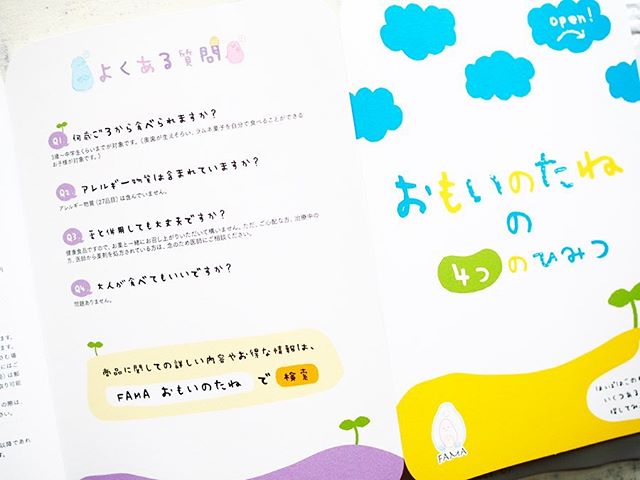 よくある質問
Q1. 何歳ごろから食べられますか?
3歳~中学生くらいまでが対象です。(奥歯が生えそろい、ラムネ菓子を自分で食べることができる
お子様が対象です。)
Q2. アレルギー物質は含まれていますか?
アレルギー物質(27品目)は含んでいません。
Q3. 薬と併用しても大丈夫ですか?
健康食品ですので、お薬と一緒にお召し上がりいただいて構いません。ただ、ご心配な方、治療中の
方、医師から薬剤を処方されている方は、念のため医師にご相談ください。
Q4. 大人が食べてもいいですか?
問題ありません。
商品に関しての詳しい内容やお得な情報は、
FAMA おもいのたね で 検索
open!
おもいのたね
の
4つのひみつ
FAMA